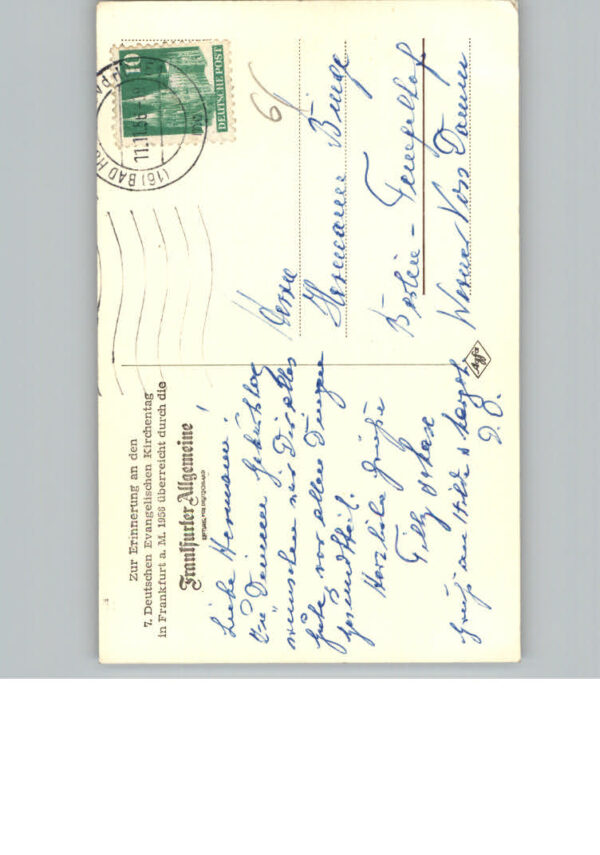 Zur Erinnerung an den
7. Deutschen Evangelischen Kirchentag
in Frankfurt a. M. 1956 überreicht durch die
Frankfurter Allgemeine
ZEITUNG FÜR DEUTSCHLAND
Lieber Hermann!
Zu Deinem Geburtstag
wünschen wir Dir alles
gute vor allen Dingen
gesundheit.
Herzliche Grüße
Gruß an Hilde
10
DEUTSCHE POST
(16) BAD HO
11.11.56
6
Herrn
Hermann Binge
Berlin - Tempelhof
Werner Voss Damm
Agfa